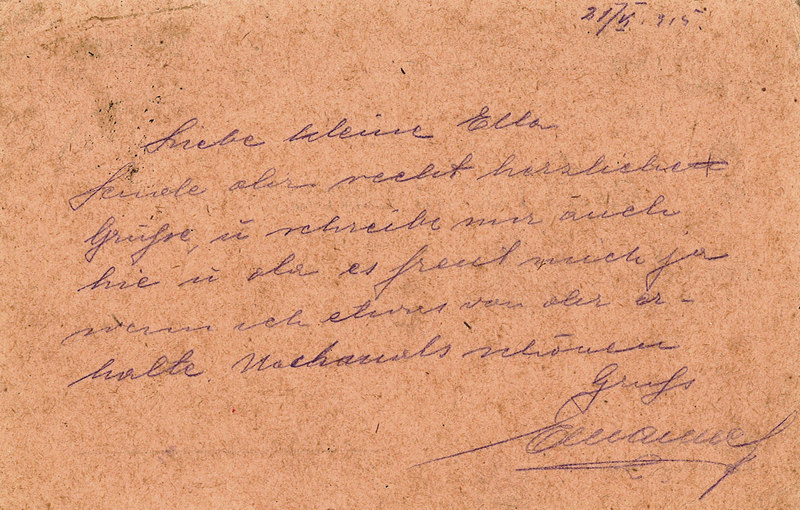 21/VI. 915.
Liebe kleine Ella
Sende dir recht herzliche
Grüße, u schreibe mir auch
hie u da es freut mich ja
wenn ich etwas von dir er-
halte. Nochmals schönen
Gruß
Emanuel